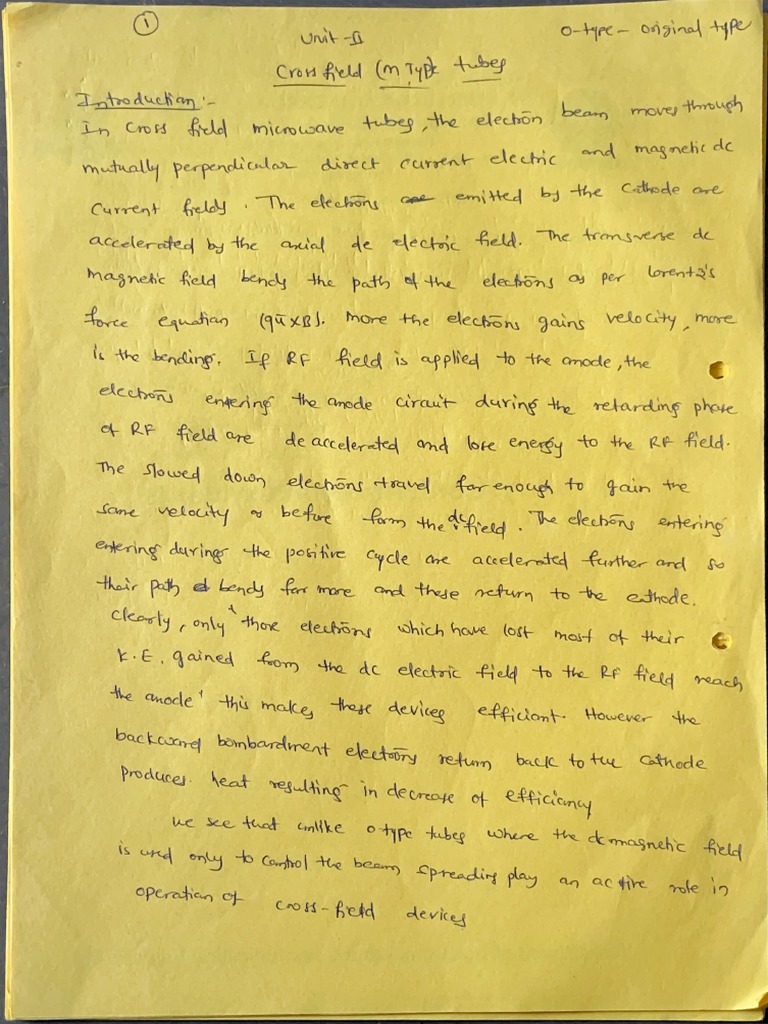 1
Unit-II
O-type - Original type
Cross field (M Type) tubes
Introduction:-
In cross field microwave tubes, the electron beam moves through
mutually perpendicular direct current electric and magnetic dc
current fields. The electrons are emitted by the cathode are
accelerated by the axial dc electric field. The transverse dc
magnetic field bends the path of the electrons as per Lorentz's
force equation (qū×B). More the electrons gains velocity, more
is the bending. If RF field is applied to the anode, the
electrons entering the anode circuit during the retarding phase
of RF field are de accelerated and lose energy to the RF field.
The slowed down electrons travel far enough to gain the
same velocity as before form the dc field. The electrons entering
entering during the positive cycle are accelerated further and so
their path bends far more and these return to the cathode.
clearly, only those electrons which have lost most of their
K.E. gained from the dc electric field to the RF field reach
the anode. this makes these devices efficient. However the
backward bombardment electrons return back to the cathode
produces heat resulting in decrease of efficiency
we see that unlike o type tubes where the dc magnetic field
is used only to control the beam spreading play an active role in
operation of cross-field devices